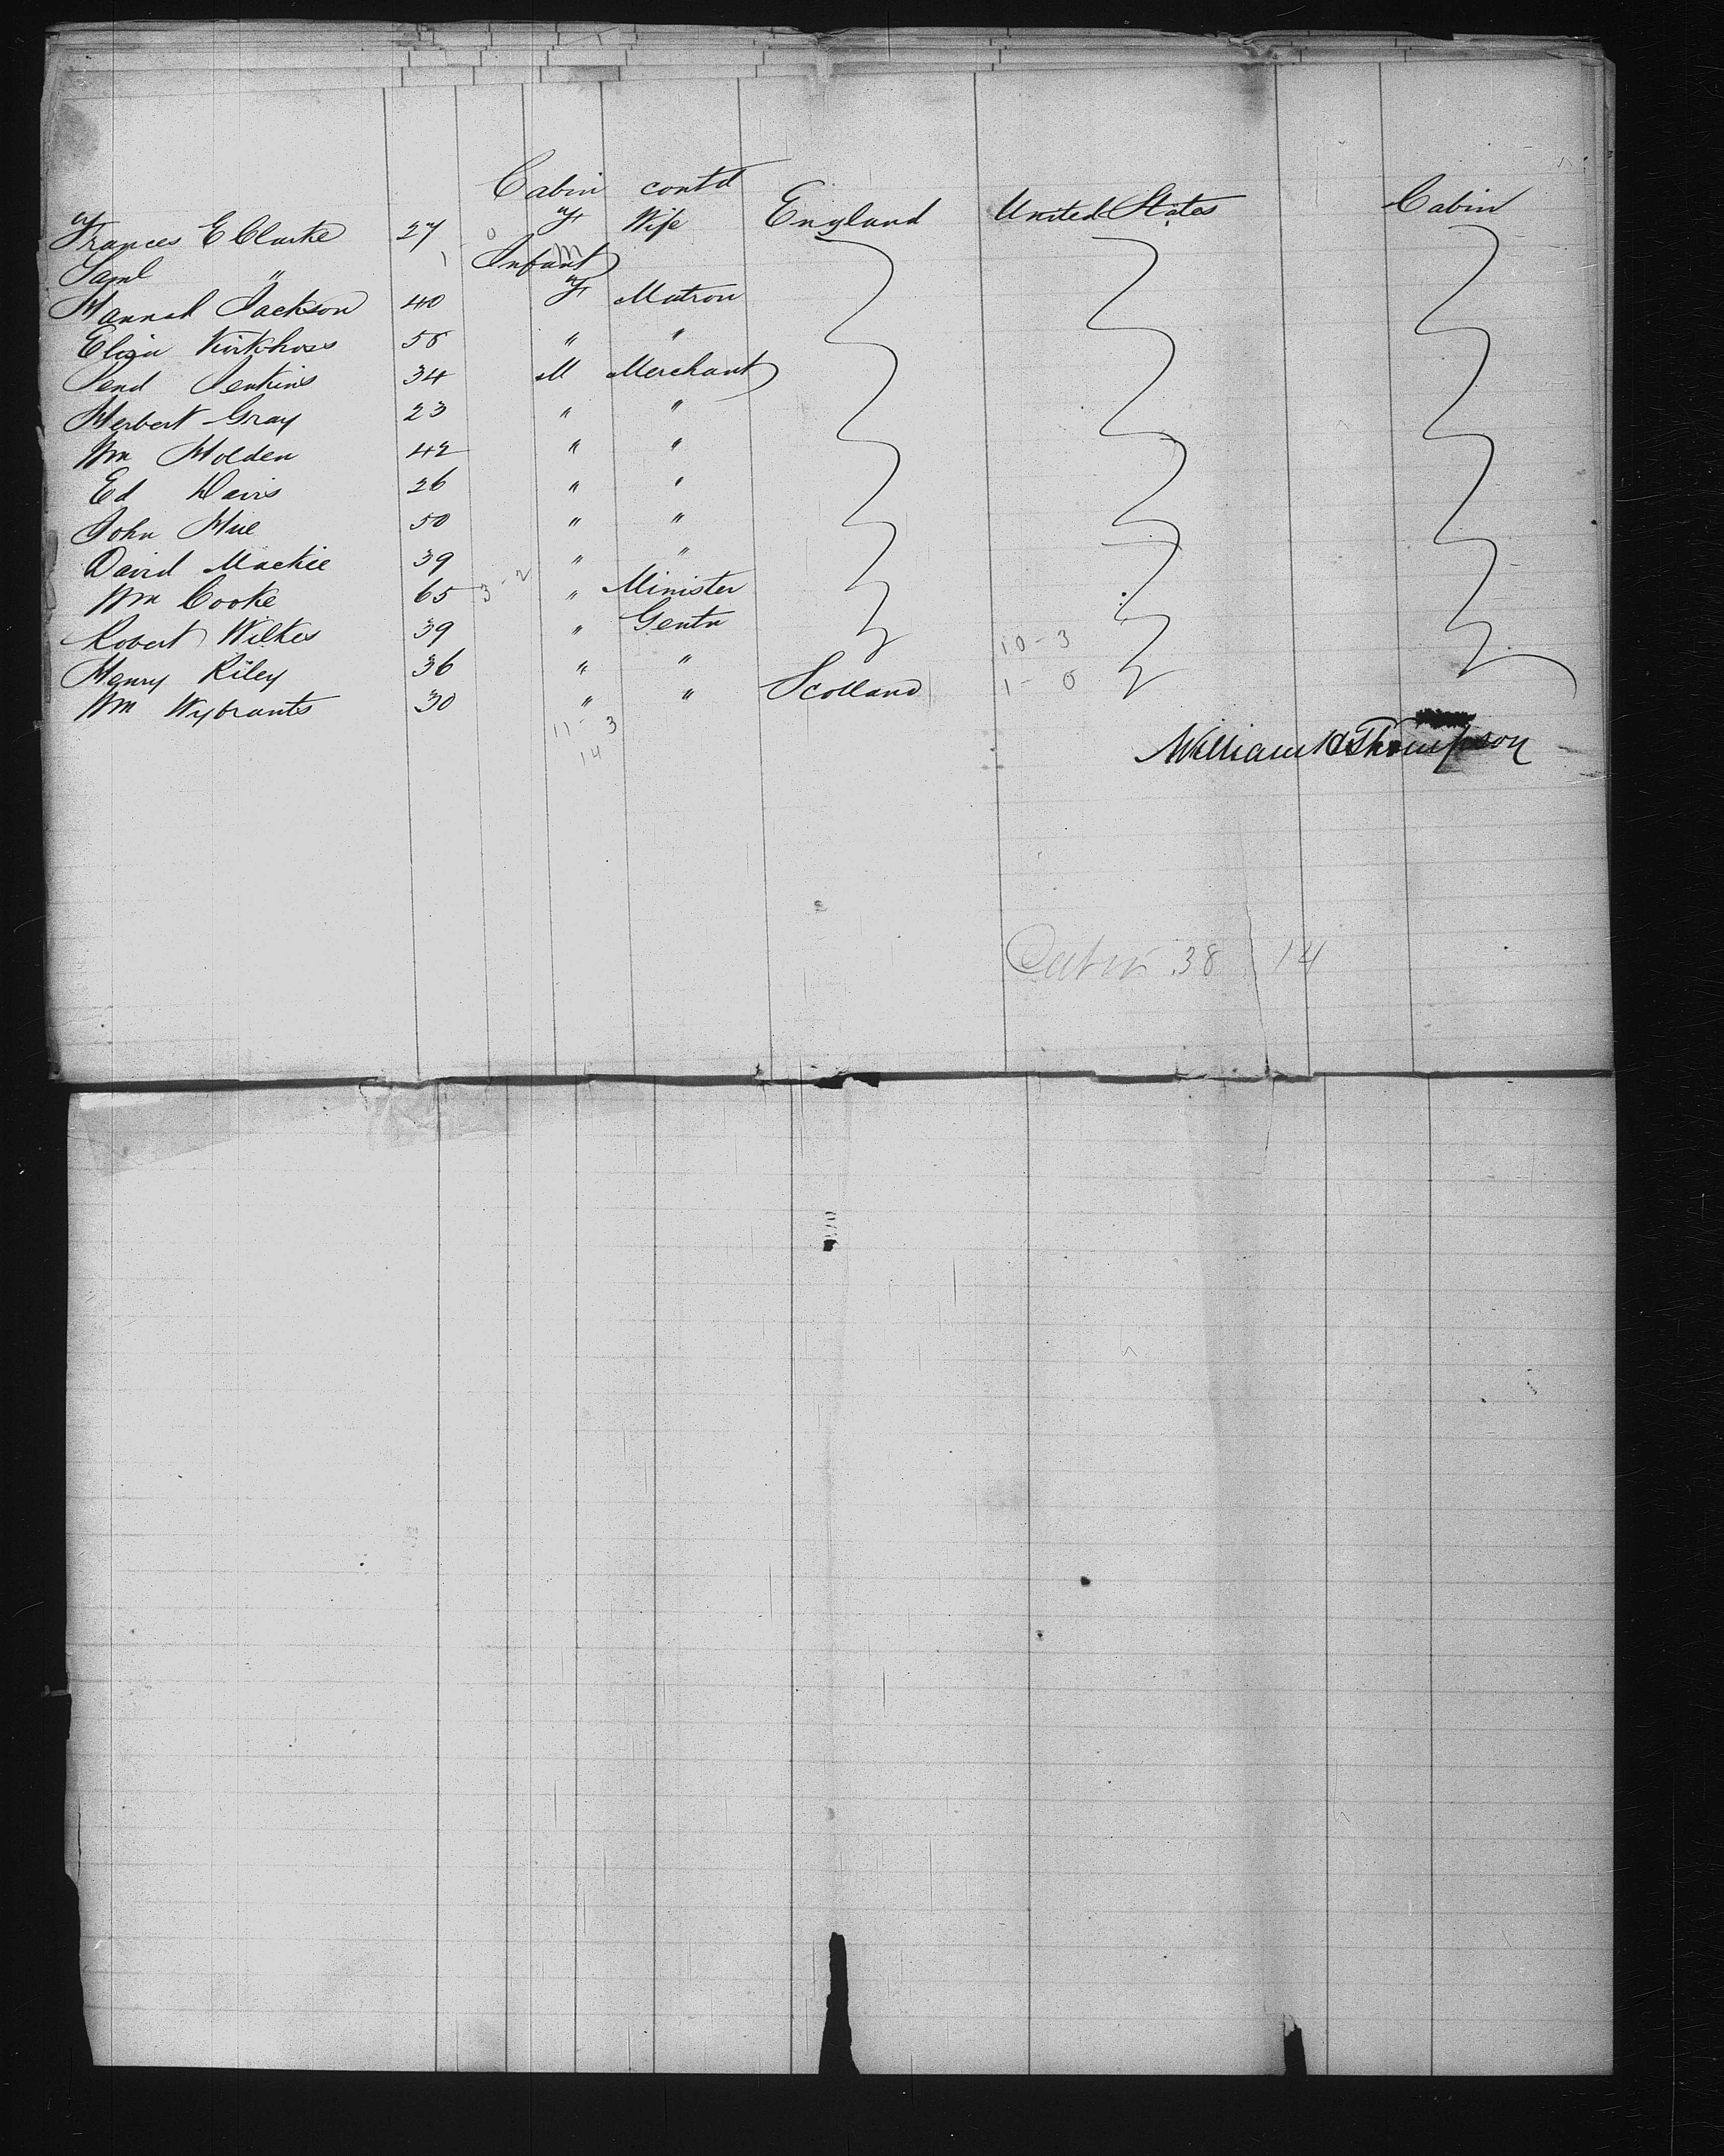 Cabin contd
Frances E Clarke 27 F Wife England United States Cabin
Saml " Infant m
Hannah Jackson 40 F Matron
Eliza 58 " "
Jenkins 34 M Merchant
Herbert Gray 23 " "
Wm Holden 42 " "
Ed Davis 26 " "
John Hue 50 " "
David Mackie 39 " "
Wm Cooke 65 3-2 " Minister
Robert Wilkes 39 " Gentn 10-3
Henry Riley 36 " " Scotland 1-0
Wm Wybrants 30 " "
11-3
14
William H Thompson
Cabin 38 14